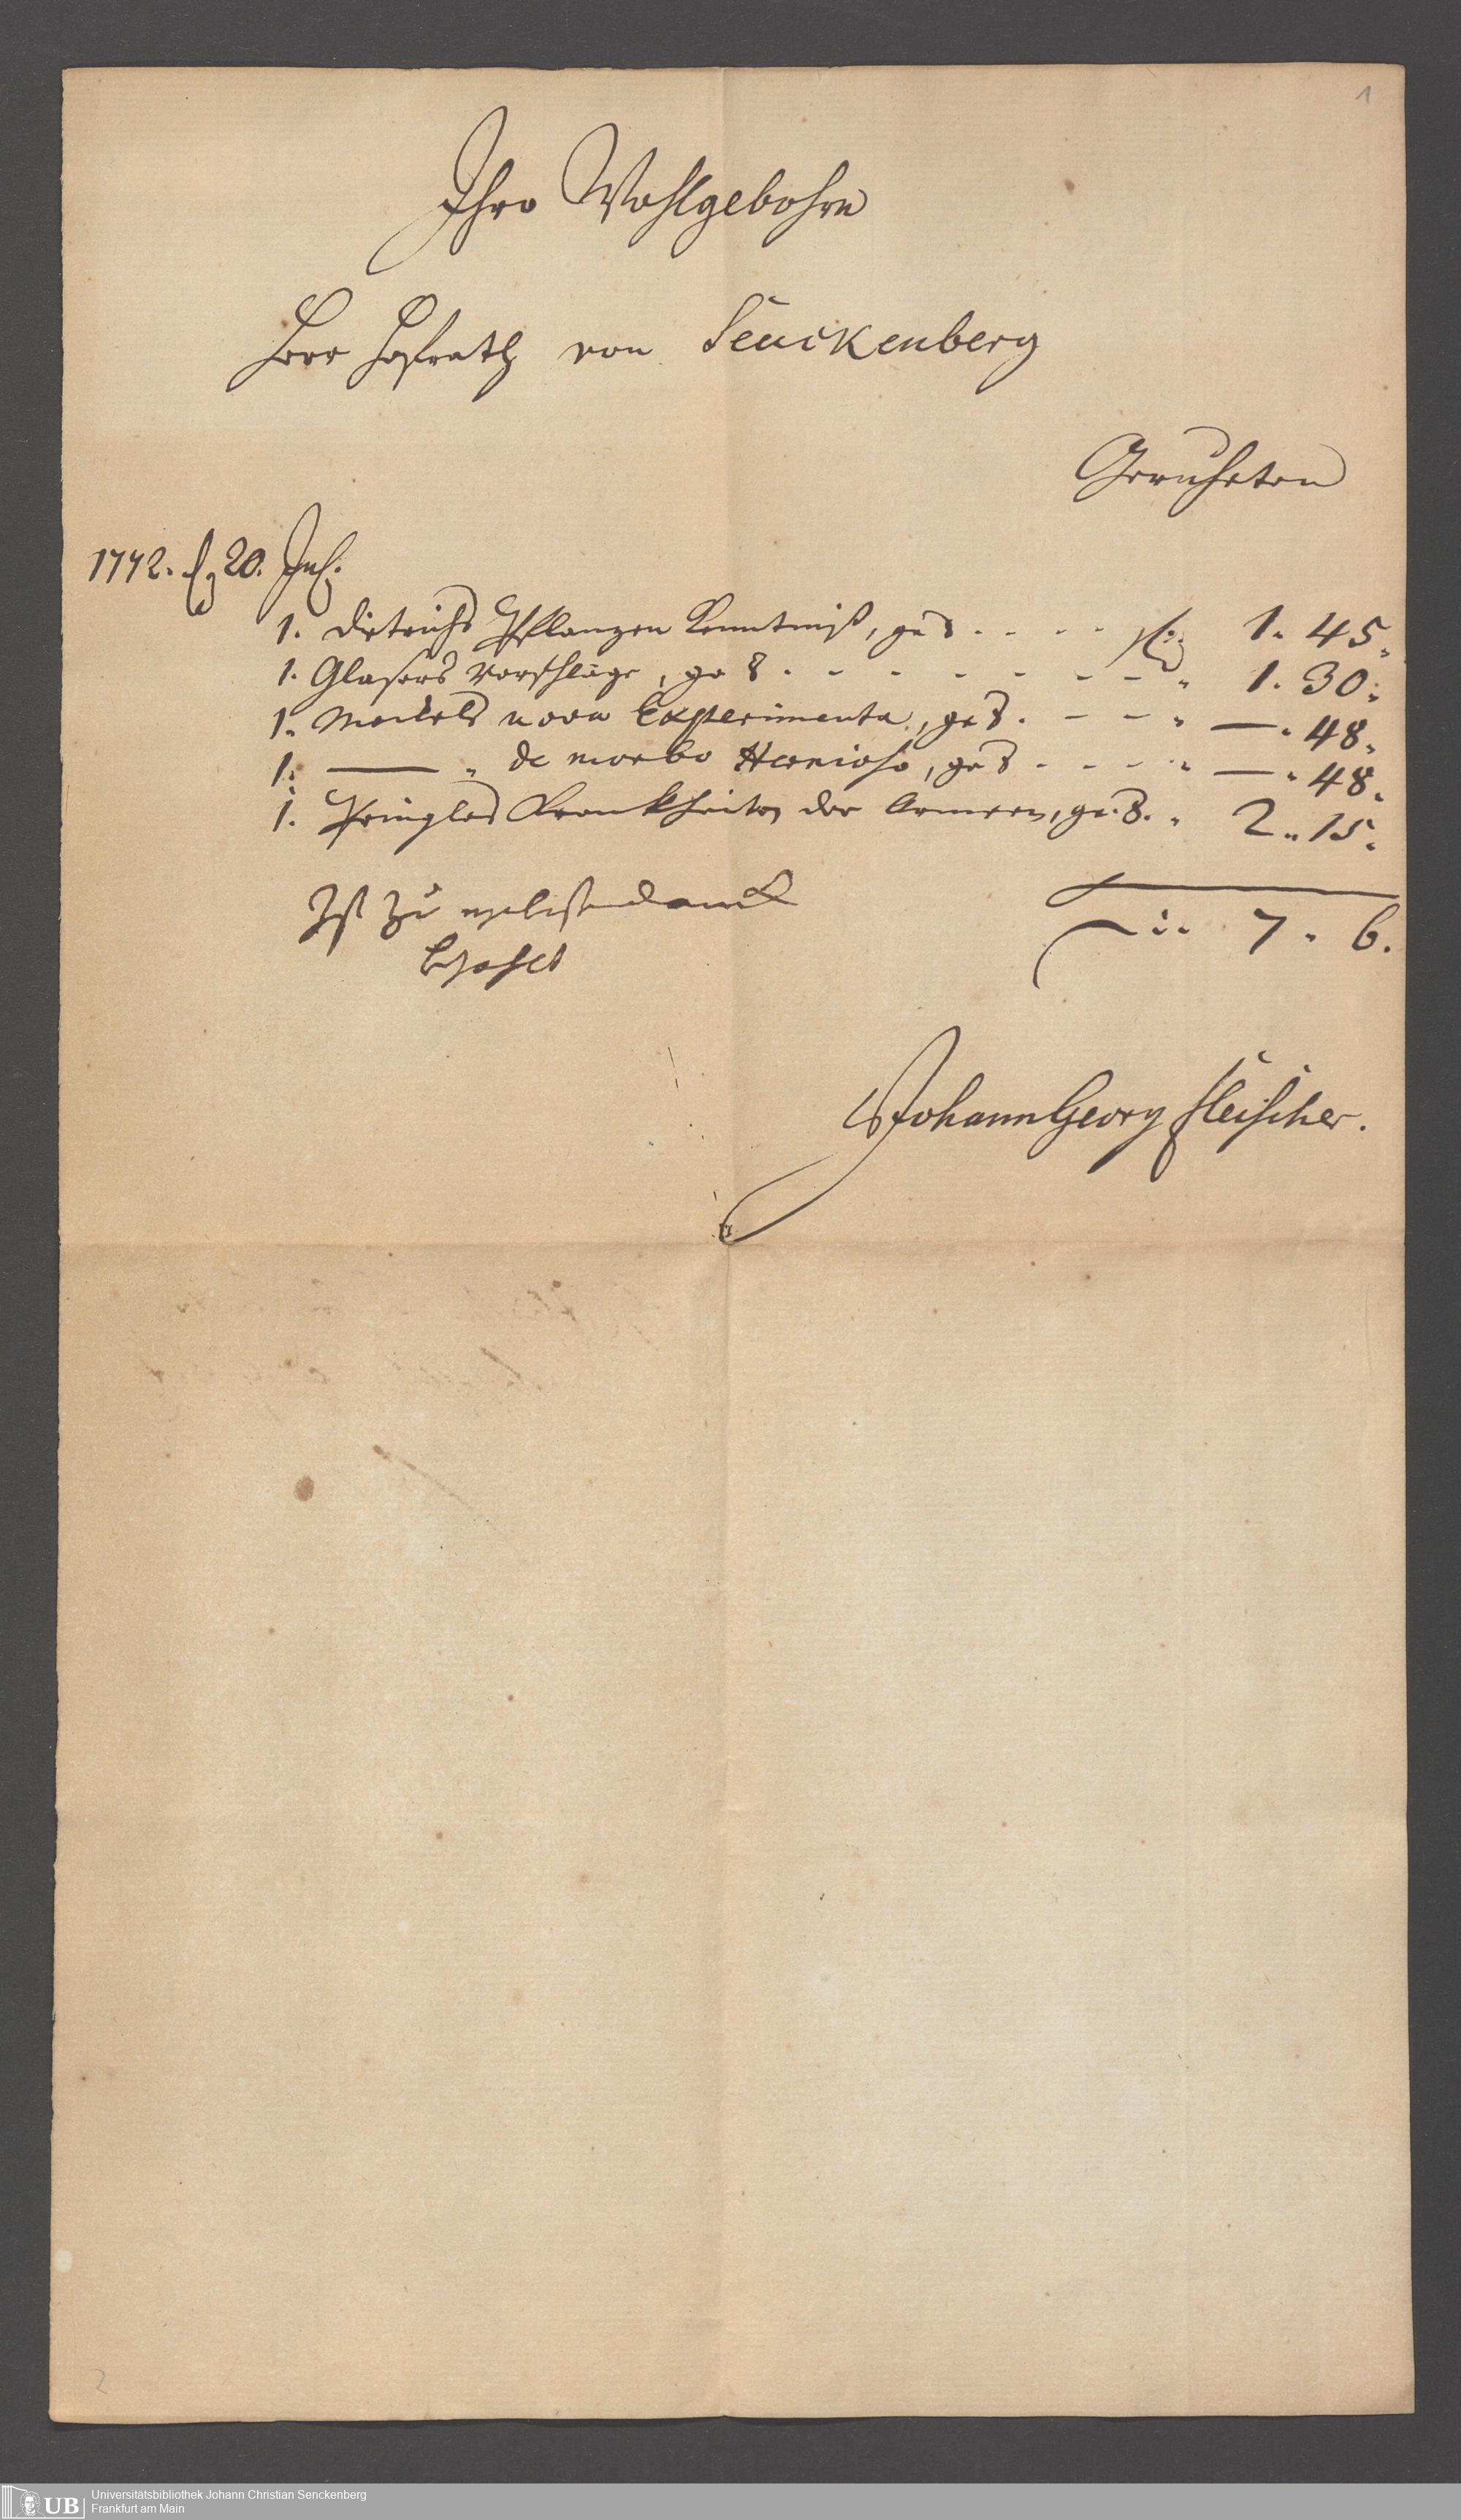 1
Ihro Wohlgebohrn
Herr Hofrath von Senckenberg
Geruheten
1772. d. 20. Jul.
1. Dietrichs Pflanzen Kenntniß, 8 . . . . fl. 1. 45.
1. Glasers Vorschläge, 8 . - - - - - - " 1. 30.
1. Meckels nova Experimenta, 8 . - - " — " 48.
1. —— " de morbo Hernioso, 8 - - - - " — " 48.
1. Pringles Krankheiten der Armeen, 8. " 2 " 15.
7 " 6.
Ist zu Danck
bezahlt
Johann Georg Fleischer.
2
UB
Universitätsbibliothek Johann Christian Senckenberg
Frankfurt am Main